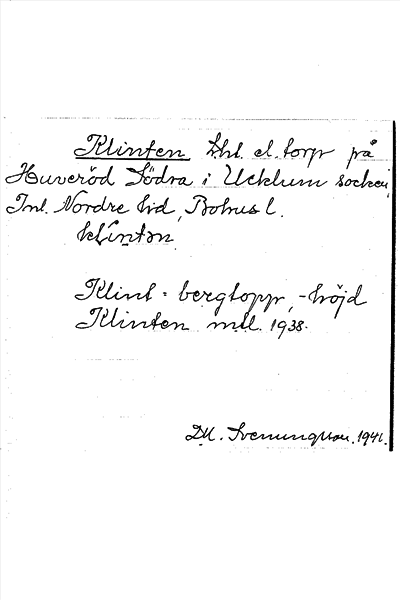 Klinten lht. el. torp på
Huveröd Södra i Ucklum socken,
Inl. Nordre hd, Bohusl.
klíntən
Klint = bergtopp, -höjd
Klinten mtl. 1938.
D.U. Svenungsson. 1941.